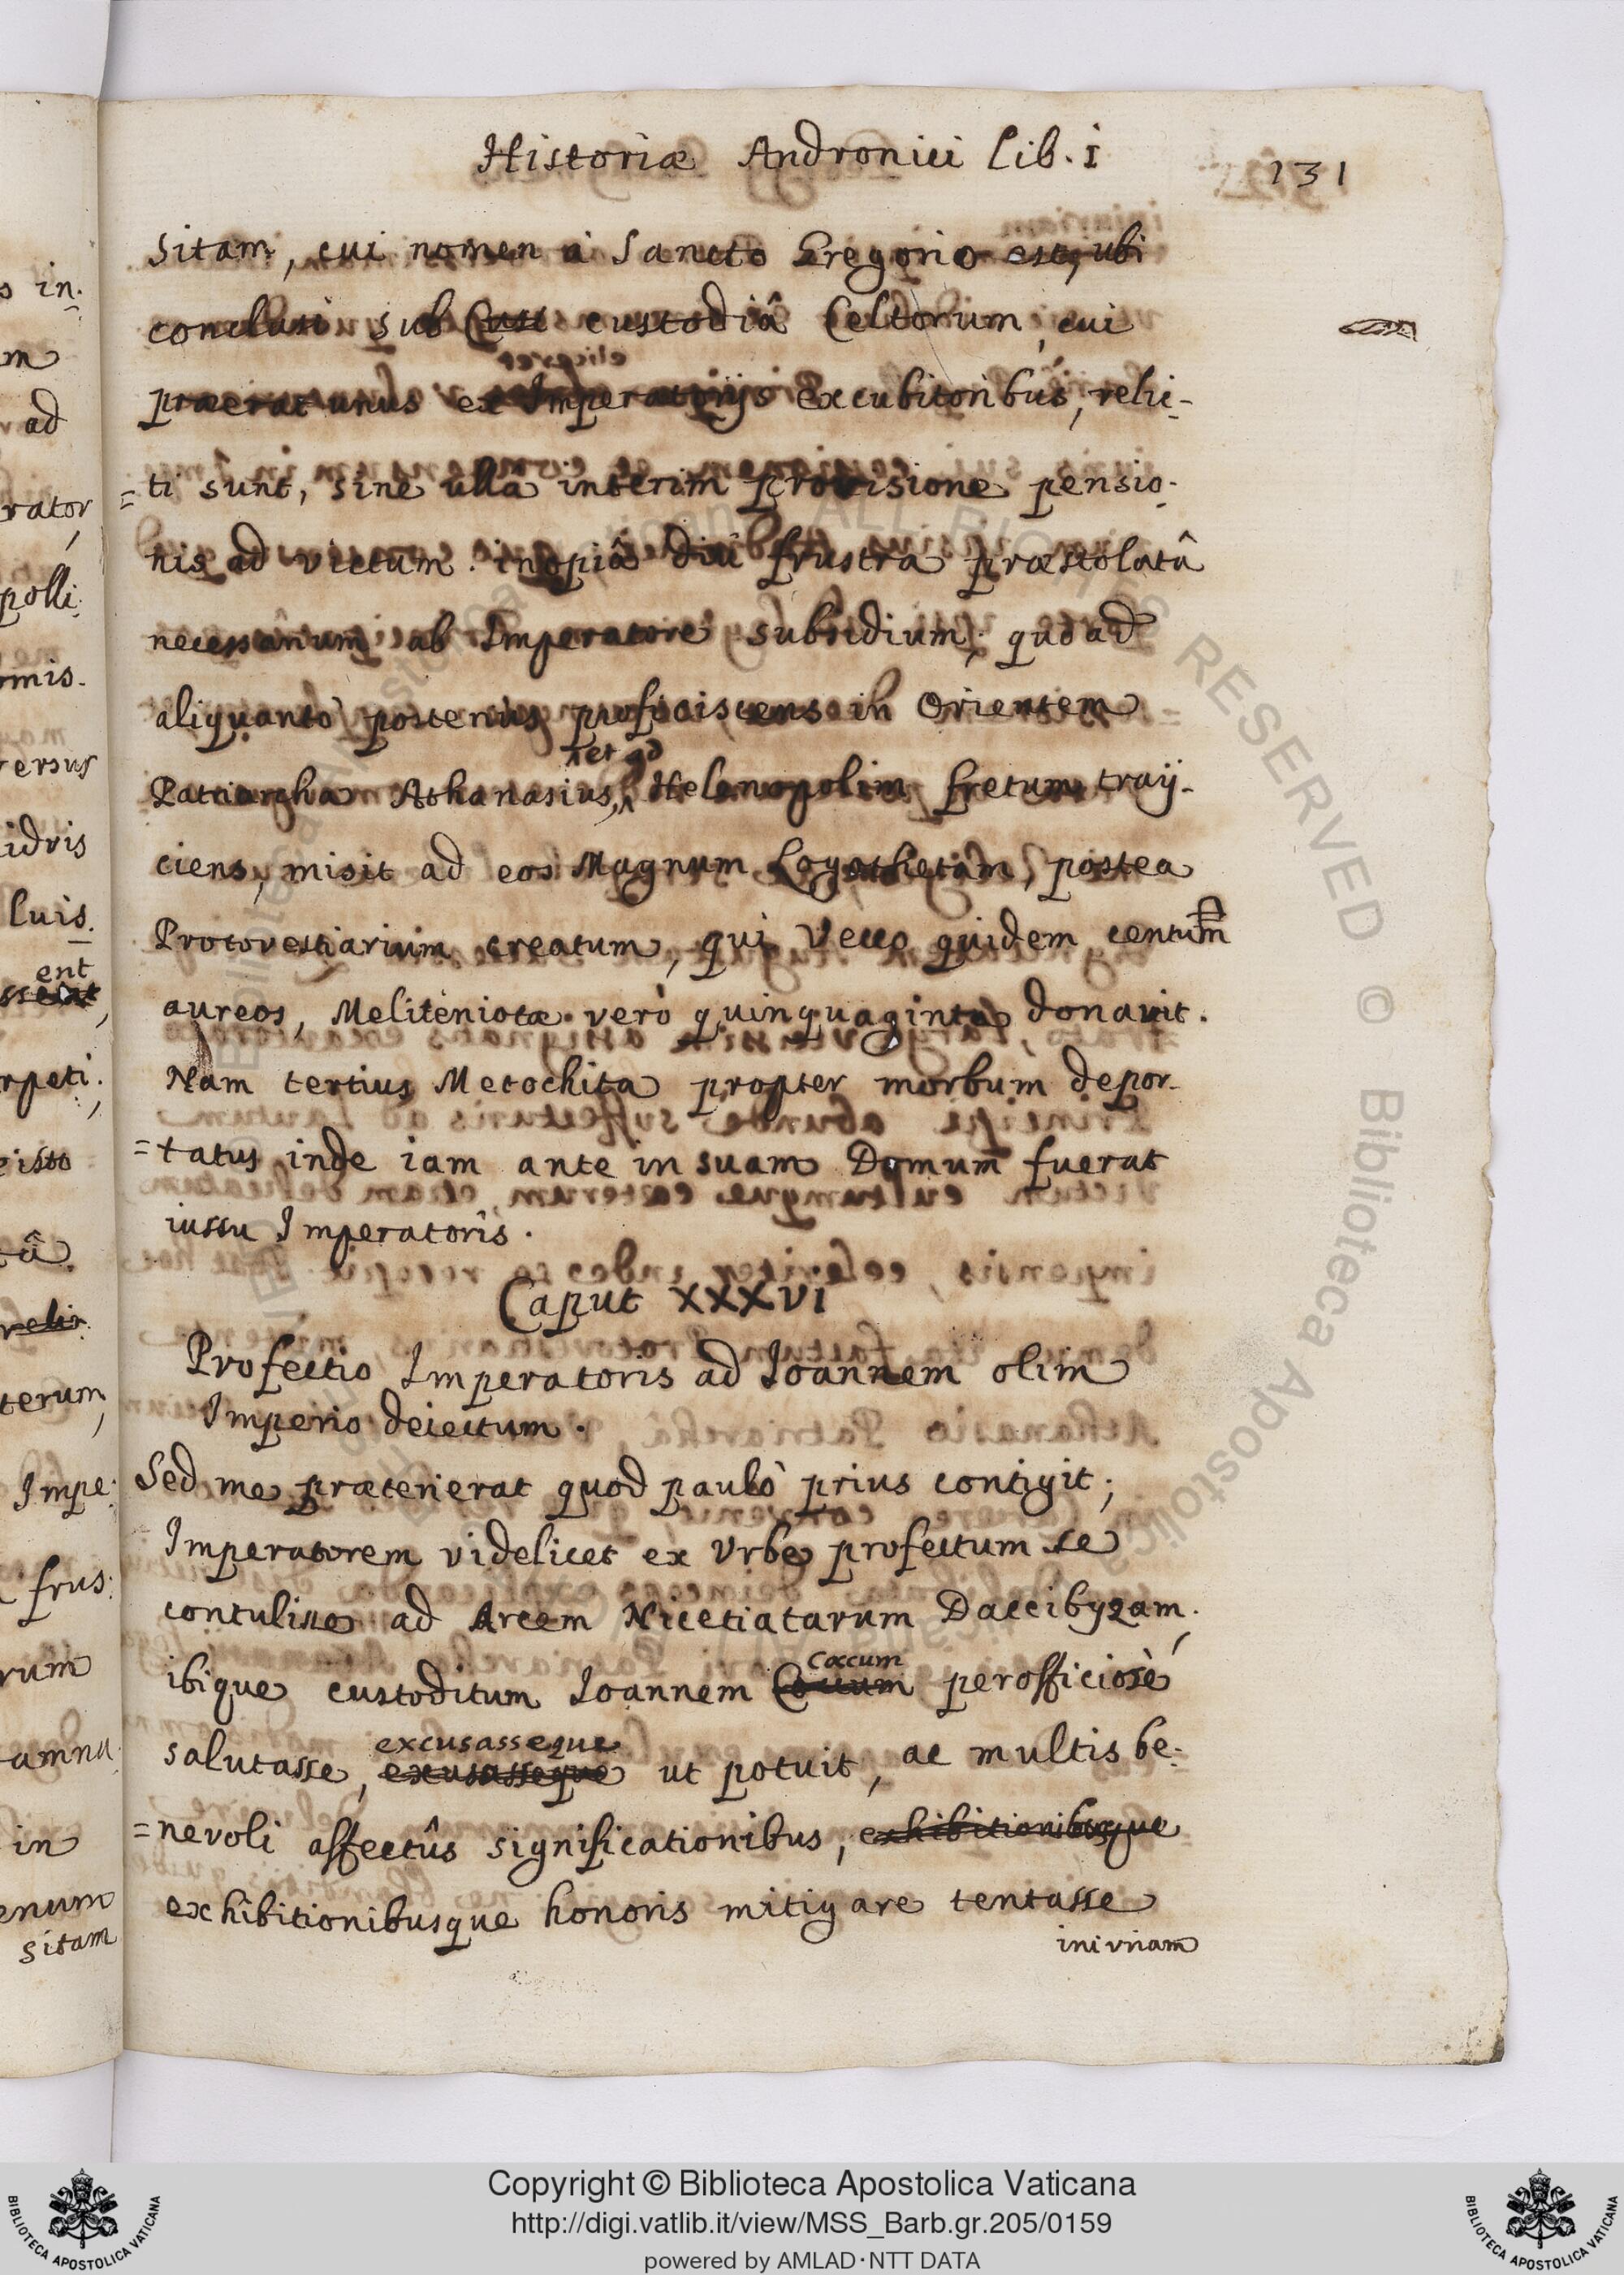 Historiæ Andronici Lib. I
131
sitam, cui nomen à Sancto Gregorio est, ubi
conclusi sub Cust custodiâ Celtorum, cui
præerat unus ex Imperatorijs excubitoribus, relic-
=ti sunt, sine ullâ interim provisione pensio-
nis ad victum. inopiâ diù frustra præstolatâ
necessarium ab Imperatore subsidium; quoad
aliquanto posterius proficiscens in Orientem
et ad
Patriarcha Athanasius, Helenopolim fretum traij-
ciens, misit ad eos Magnum Logothetam, postea
Protovestiarium creatum, qui Vecco quidem centum
aureos, Meliteniotæ verò quinquaginta donavit.
Nam tertius Metochita propter morbum depor-
=tatus inde iam ante in suam Domum fuerat
iussu Imperatoris.
Caput XXXVI
Profectio Imperatoris ad Ioannem olim
Imperio deiectum.
Sed me præterierat quod paulò prius contigit;
Imperatorem videlicet ex Vrbe profectum se
contulisse ad Arcem Nicetiatarum Daccibyzam,
Cæcum
ibique custoditum Ioannem perofficiosè
excusasseque
salutasse, excusasseque ut potuit, ac multis be-
=nevoli affectûs significationibus, exhibitionibusque
exhibitionibusque honoris mitigare tentasse
iniuriam
in.
m
ad
rator
polli
omis.
versus
idris
luis.
ent
rpeti.
isto
relic
terum,
Impe.
frus.
rum
in
enum
sitam
Copyright © Biblioteca Apostolica Vaticana
http://digi.vatlib.it/view/MSS_Barb.gr.205/0159
powered by AMLAD·NTT DATA
BIBLIOTECA APOSTOLICA VATICANA
BIBLIOTECA APOSTOLICA VATICANA